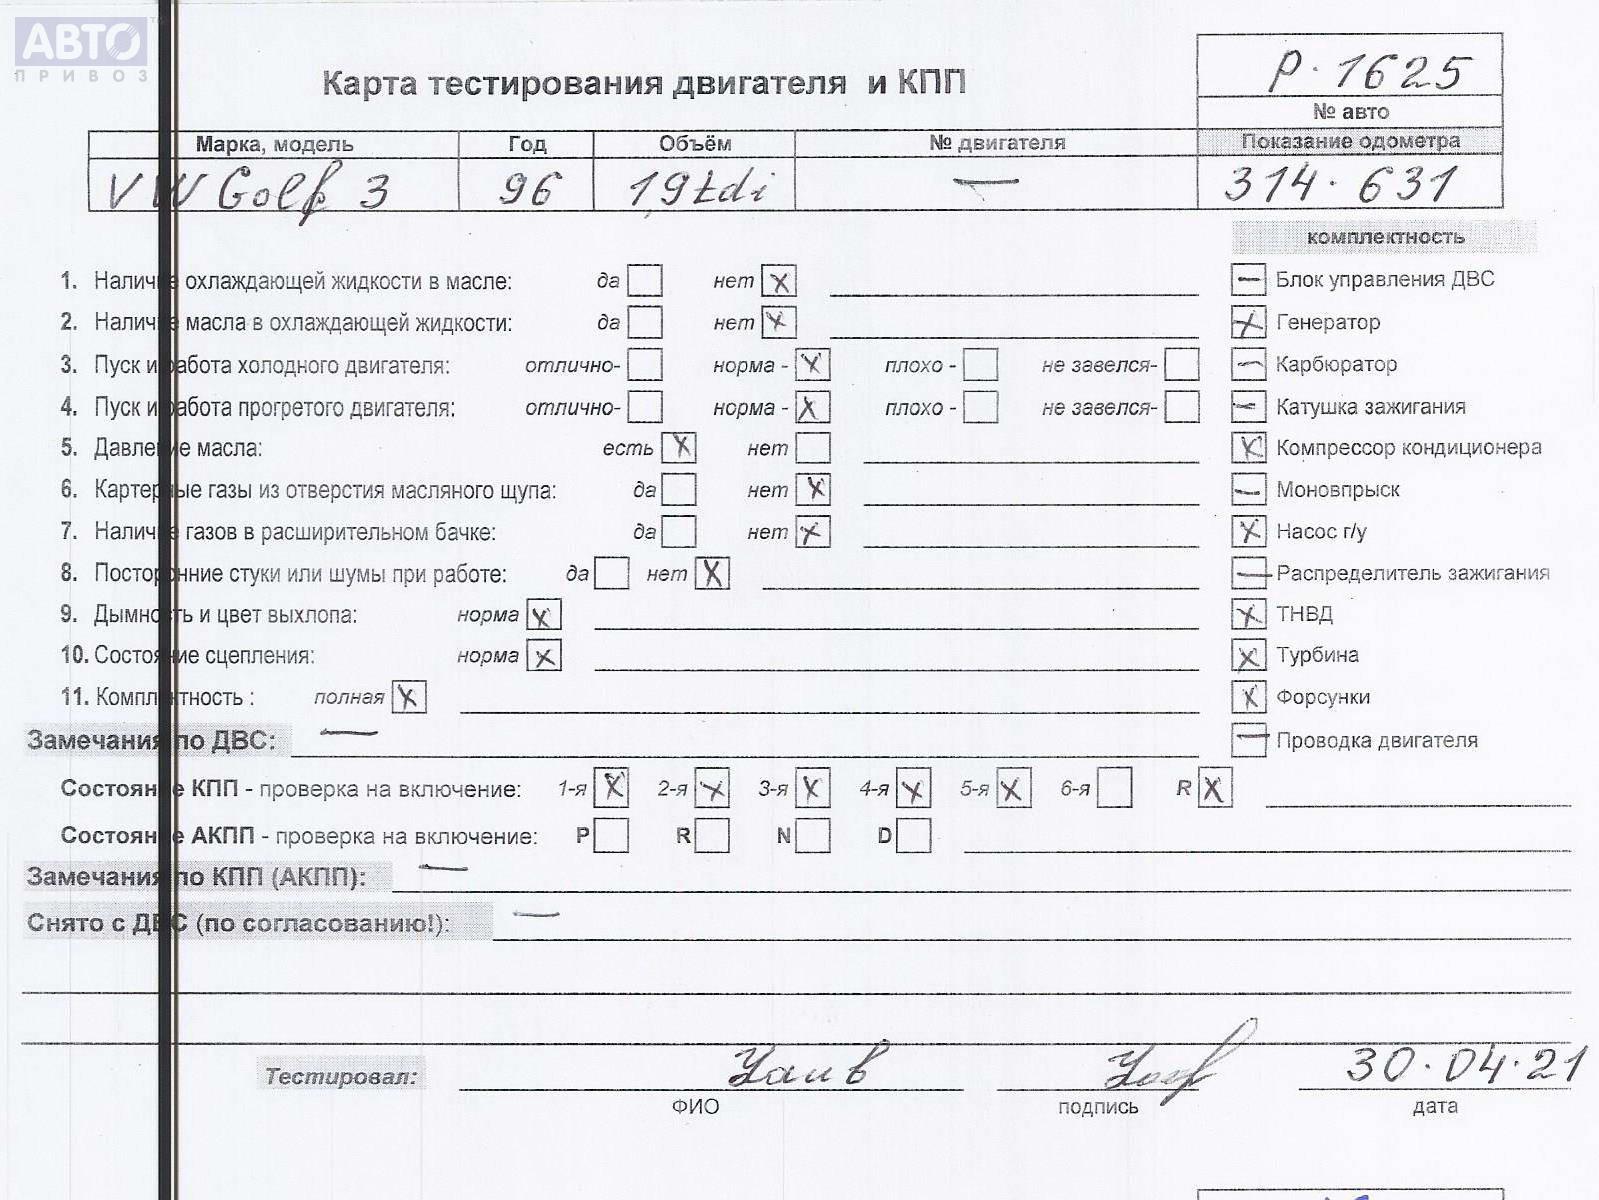 АВТО
ПРИВОЗ
Р·1625
Карта тестирования двигателя и КПП
№ авто
Марка, модель Год Объём № двигателя Показание одометра
VW Golf 3 96 1,9 tdi — 314·631
комплектность
1. Наличие охлаждающей жидкости в масле: да нет x — Блок управления ДВС
2. Наличие масла в охлаждающей жидкости: да нет x x Генератор
3. Пуск и работа холодного двигателя: отлично- норма - x плохо - не завелся- — Карбюратор
4. Пуск и работа прогретого двигателя: отлично- норма - x плохо - не завелся- — Катушка зажигания
5. Давление масла: есть x нет x Компрессор кондиционера
6. Картерные газы из отверстия масляного щупа: да нет x — Моновпрыск
7. Наличие газов в расширительном бачке: да нет x x Насос г/у
8. Посторонние стуки или шумы при работе: да нет x — Распределитель зажигания
9. Дымность и цвет выхлопа: норма x x ТНВД
10. Состояние сцепления: норма x x Турбина
11. Комплектность : полная x x Форсунки
Замечания по ДВС: — — Проводка двигателя
Состояние КПП - проверка на включение: 1-я x 2-я x 3-я x 4-я x 5-я x 6-я R x
Состояние АКПП - проверка на включение: P R N D
Замечания по КПП (АКПП): —
Снято с ДВС (по согласованию!): —
Тестировал: 30·04·21
ФИО подпись дата